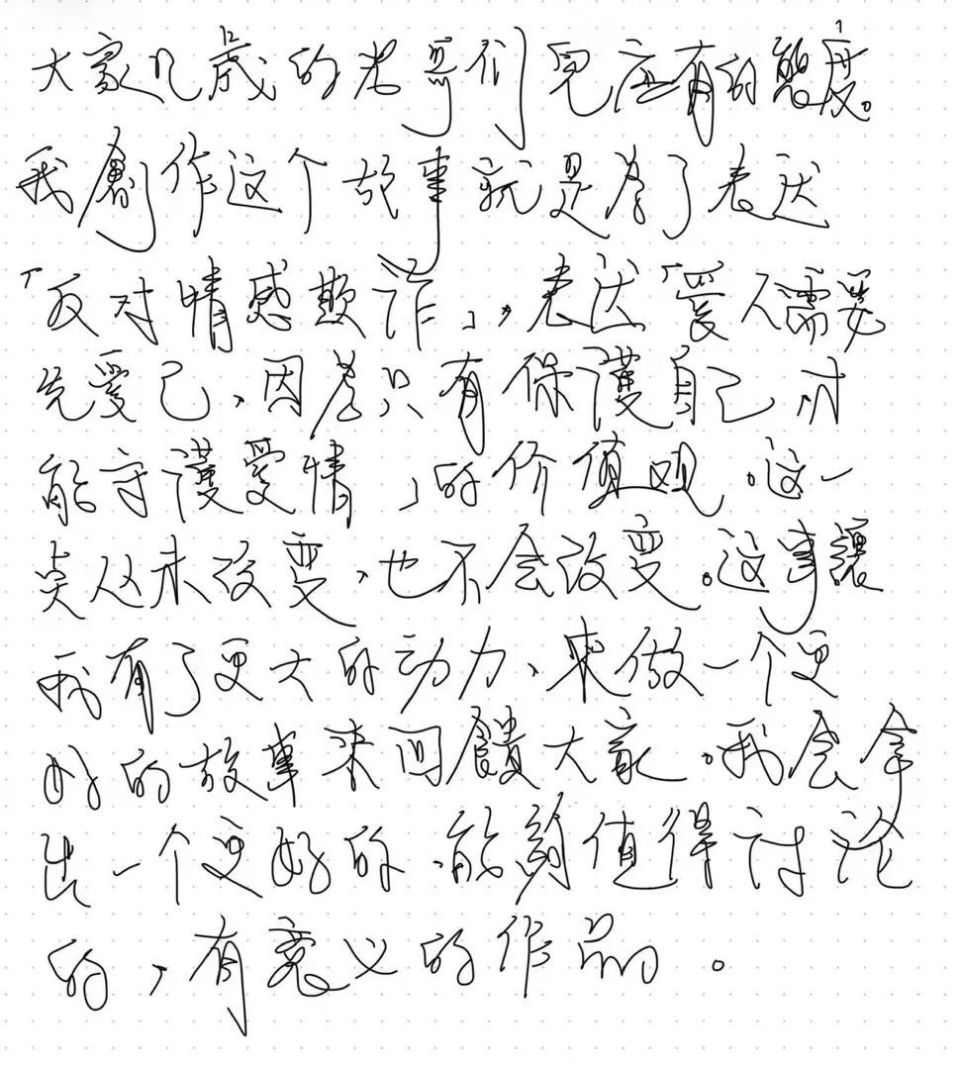 大家几歲的老哥们兒应有的態度。
我創作这个故事就是为了表达
「反对情感欺诈」，表达「愛人需要
先愛己、因为只有保護自己、才
能守護爱情」的价值观。这一
点从未改变、也不会改变。这事讓
我有了更大的动力、來做一个更
好的故事來回饋大家。我会拿
出一个更好的、能夠值得讨论
的，有意义的作品。